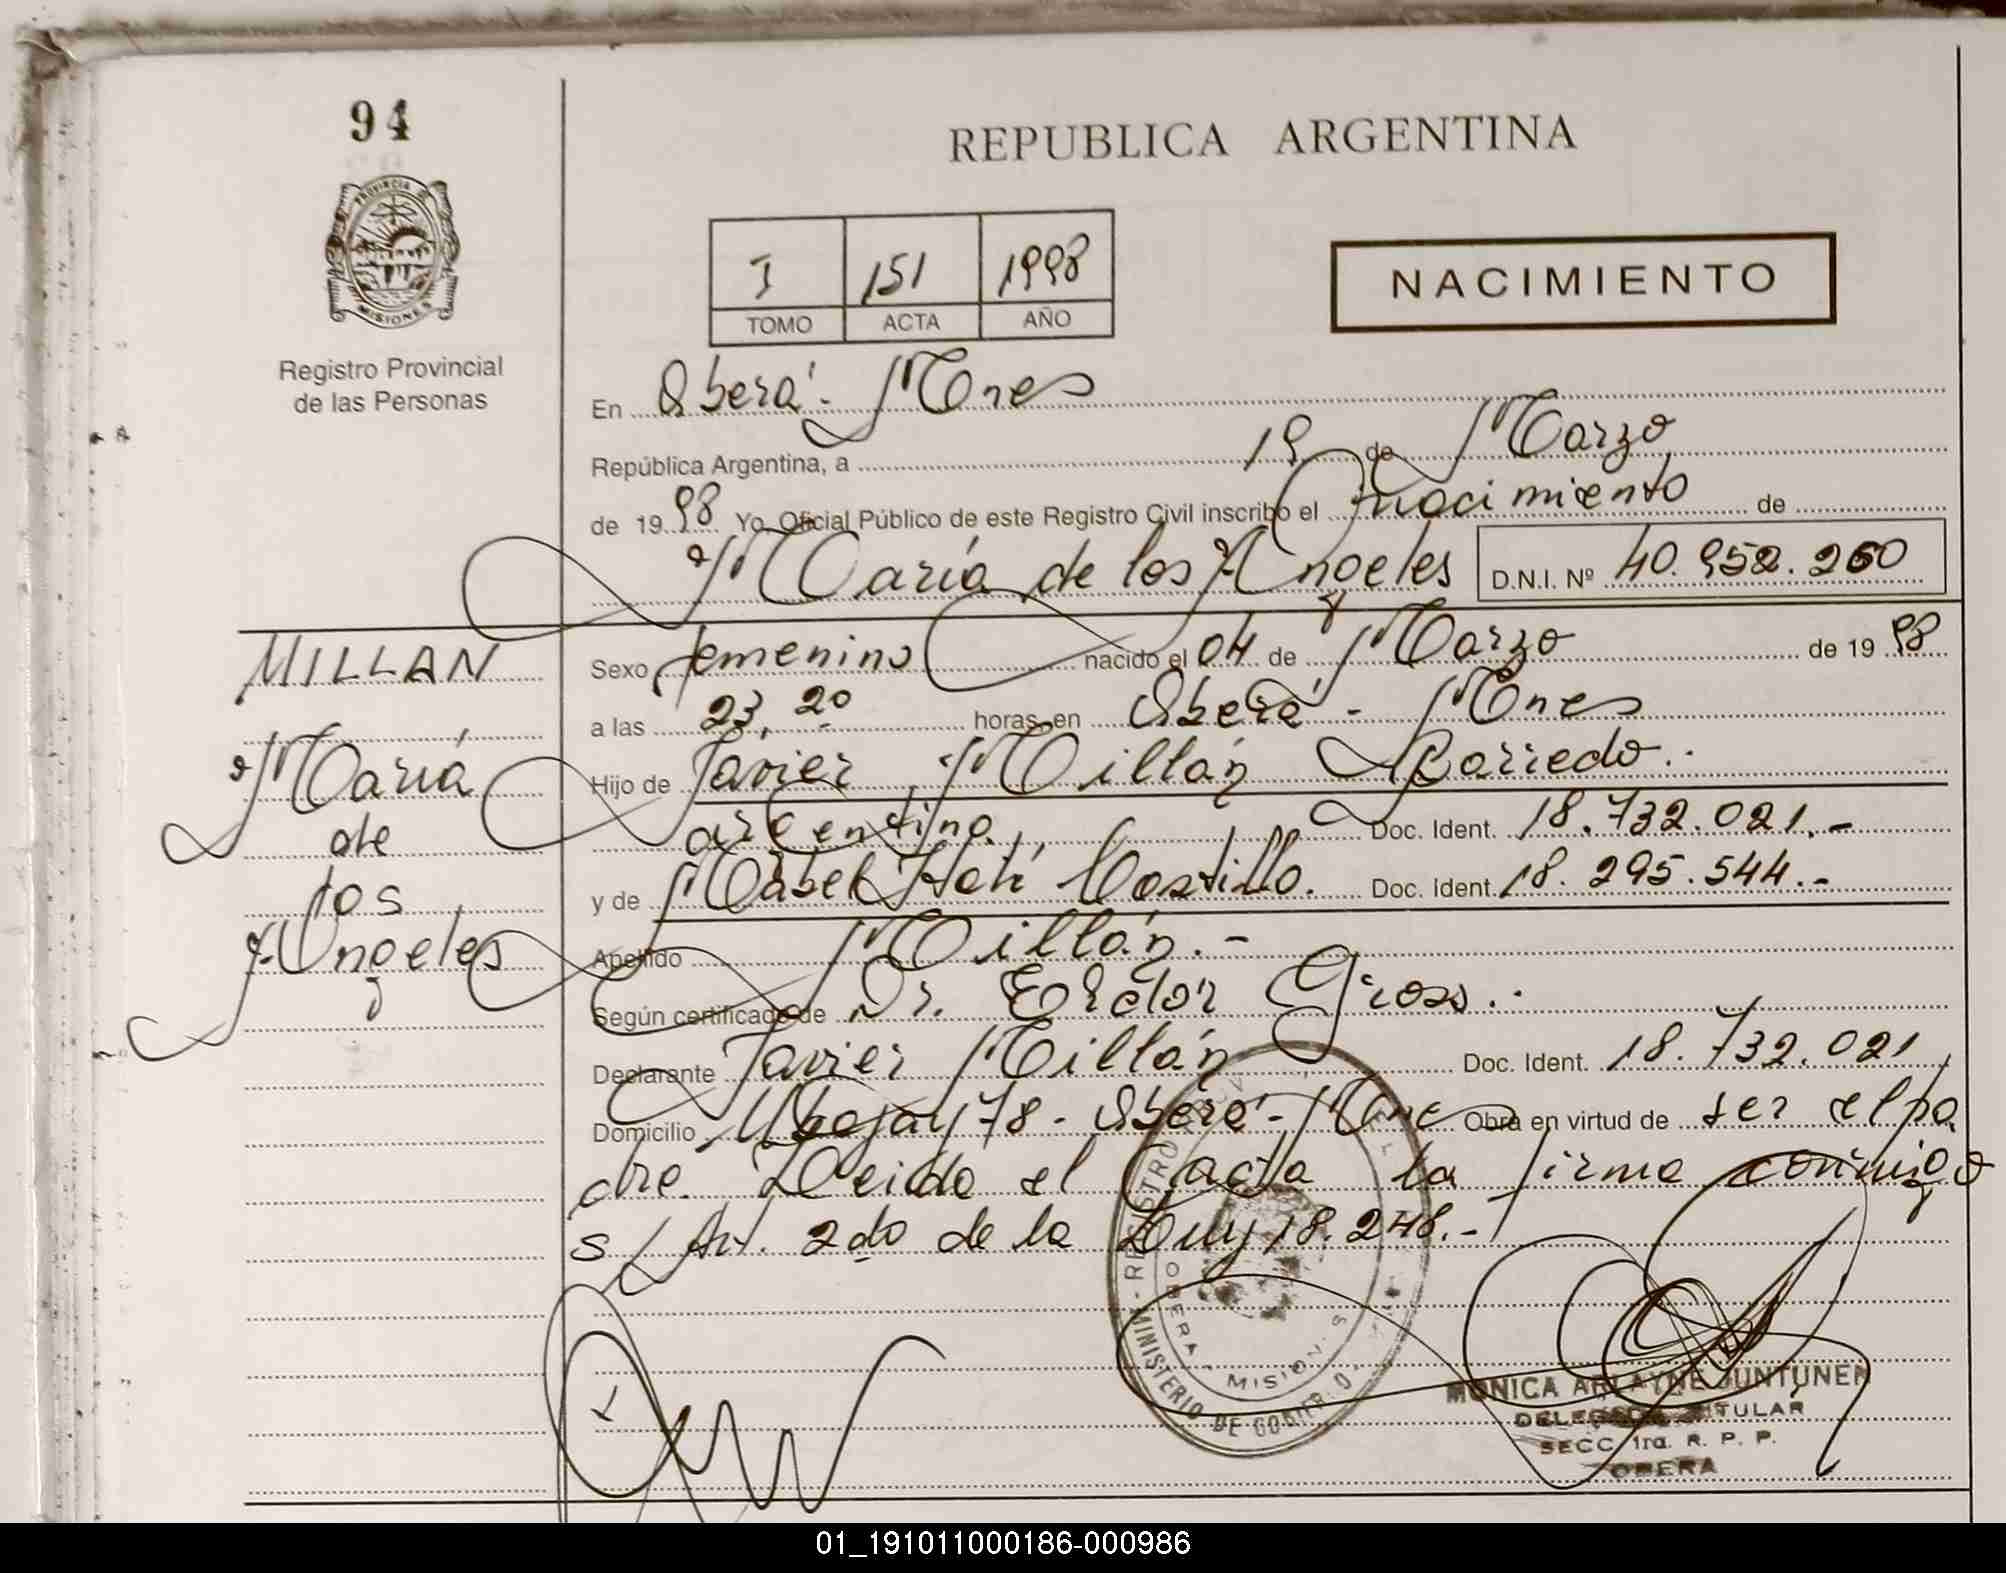 94
REPUBLICA ARGENTINA
PROVINCIA DE
MISIONES
Registro Provincial
de las Personas
I 151 1998
TOMO ACTA AÑO
NACIMIENTO
En Oberá - Mnes
República Argentina, a 19 de Marzo
de 19 98 Yo, Oficial Público de este Registro Civil inscribo el nacimiento de
María de los Angeles D.N.I. Nº 40.952.260
MILLAN
María
de
los
Angeles
Sexo femenino nacido el 04 de Marzo de 19 98
a las 23,20 horas, en Oberá - Mnes
Hijo de Javier Millán Barriedo.-
argentino Doc. Ident. 18.732.021.-
y de Mabel Castillo. Doc. Ident. 18.295.544.-
Apellido Millán.-
Según certificado de Dr. Gross.-
Declarante Javier Millán Doc. Ident. 18.732.021
Domicilio 78 - Oberá - Mne Obra en virtud de ser el pa
dre. Leida el acta la firma conmigo
s/ Art. 2do de la Ley 18.248.-
MINISTERIO DE GOBIERNO
OBERA - MISIONES
MONICA ARLAYNE JUNTUNEN
DELEGADA TITULAR
SECC. 1ra. R. P. P.
OBERA
01_191011000186-000986